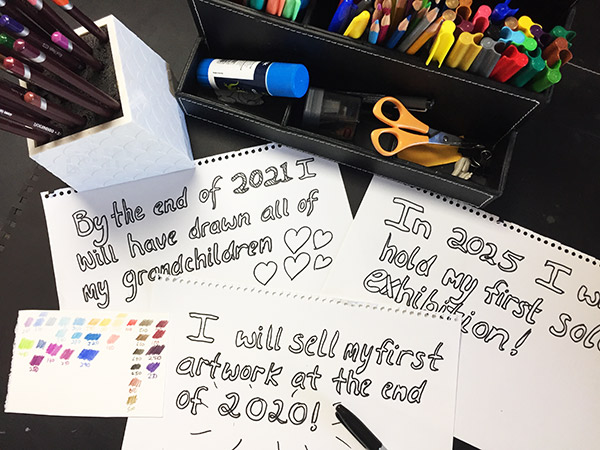 By the end of 2021 I
will have drawn all of
my grandchildren
In 2025 I
hold my first solo
exhibition!
I will sell my first
artwork at the end
of 2020!